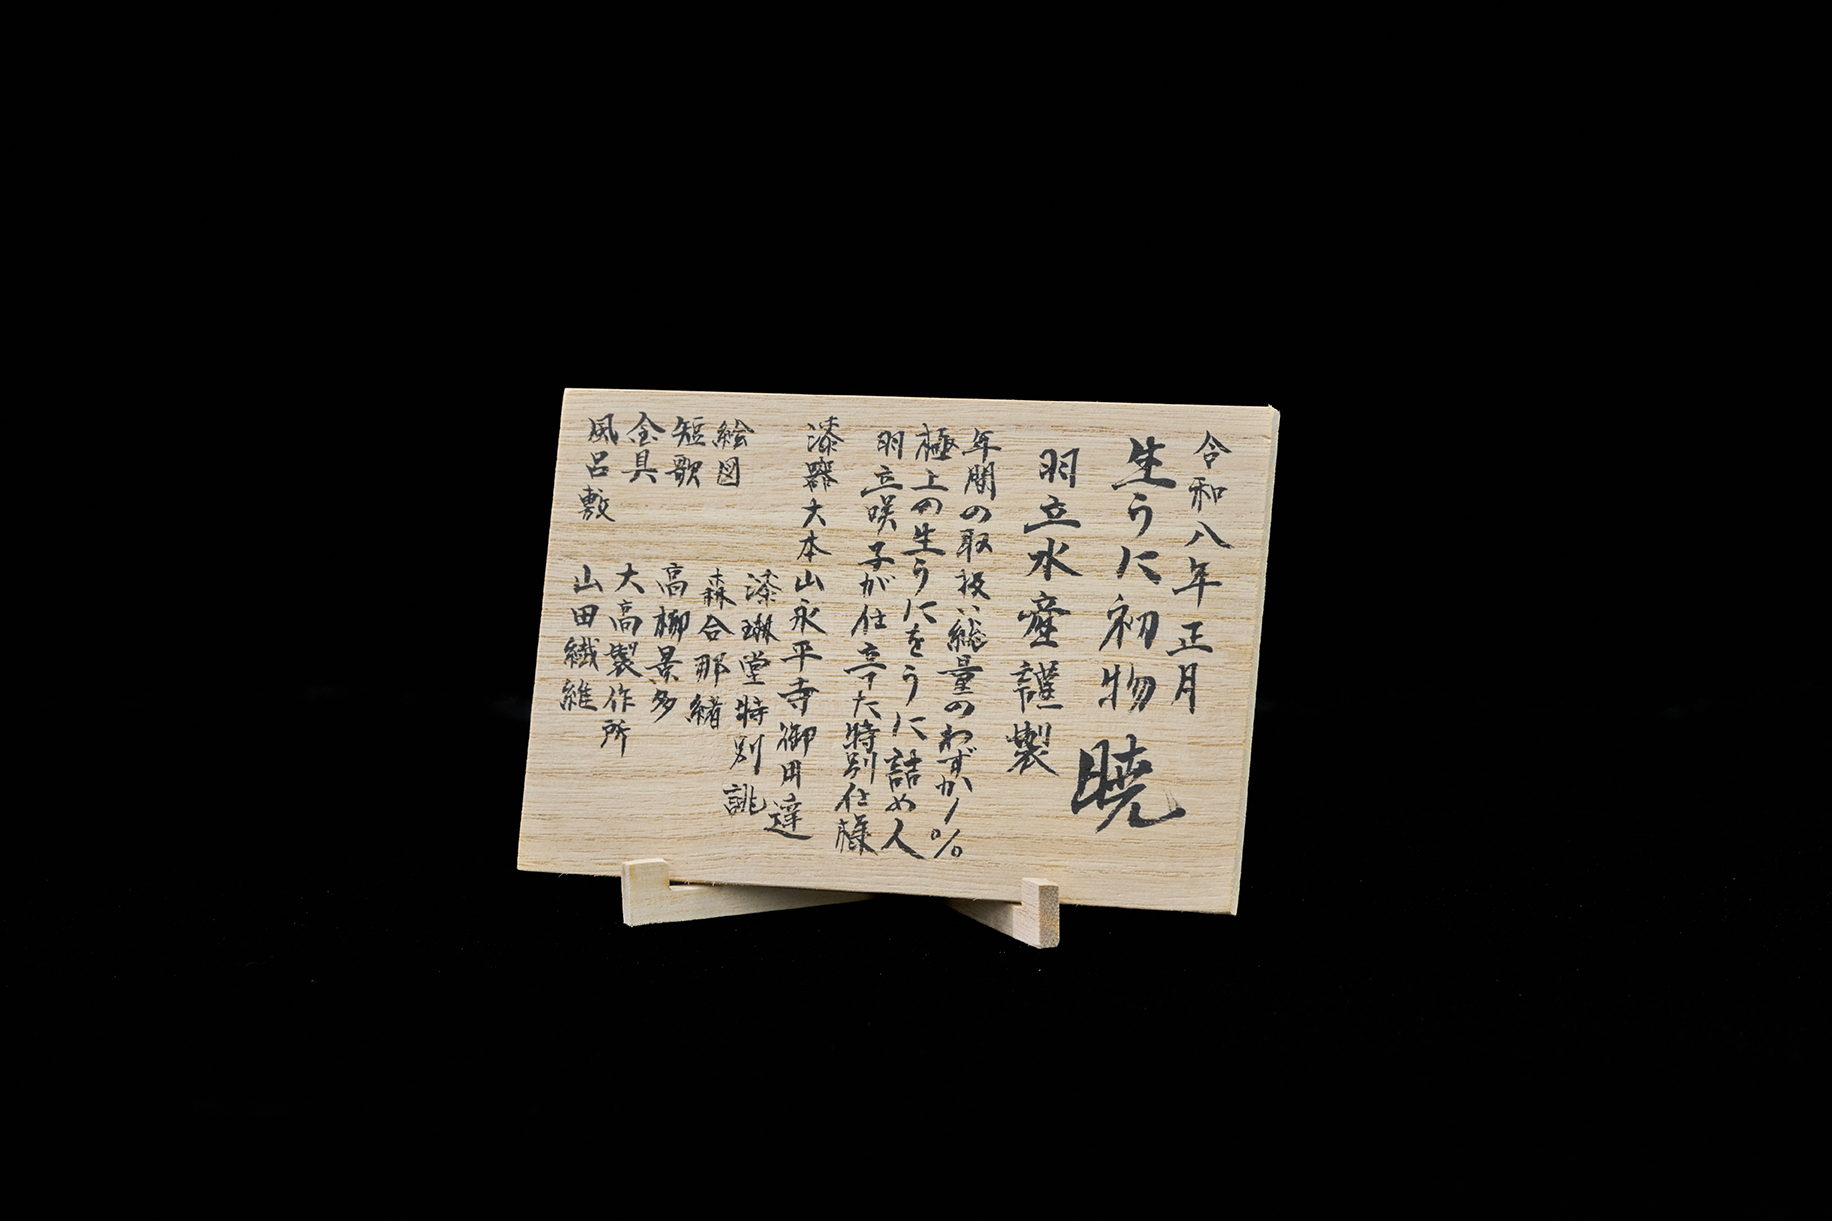 令和八年正月
生うに初物 暁
羽立水産謹製
年間の取扱い総量のわずか1%
極上の生うにをうに詰め人
羽立咲子が仕立てた特別仕様
漆器大本山永平寺御用達
漆琳堂特別誂
絵図 森合那緒
短歌 高柳景多
金具 大高製作所
風呂敷 山田繊維